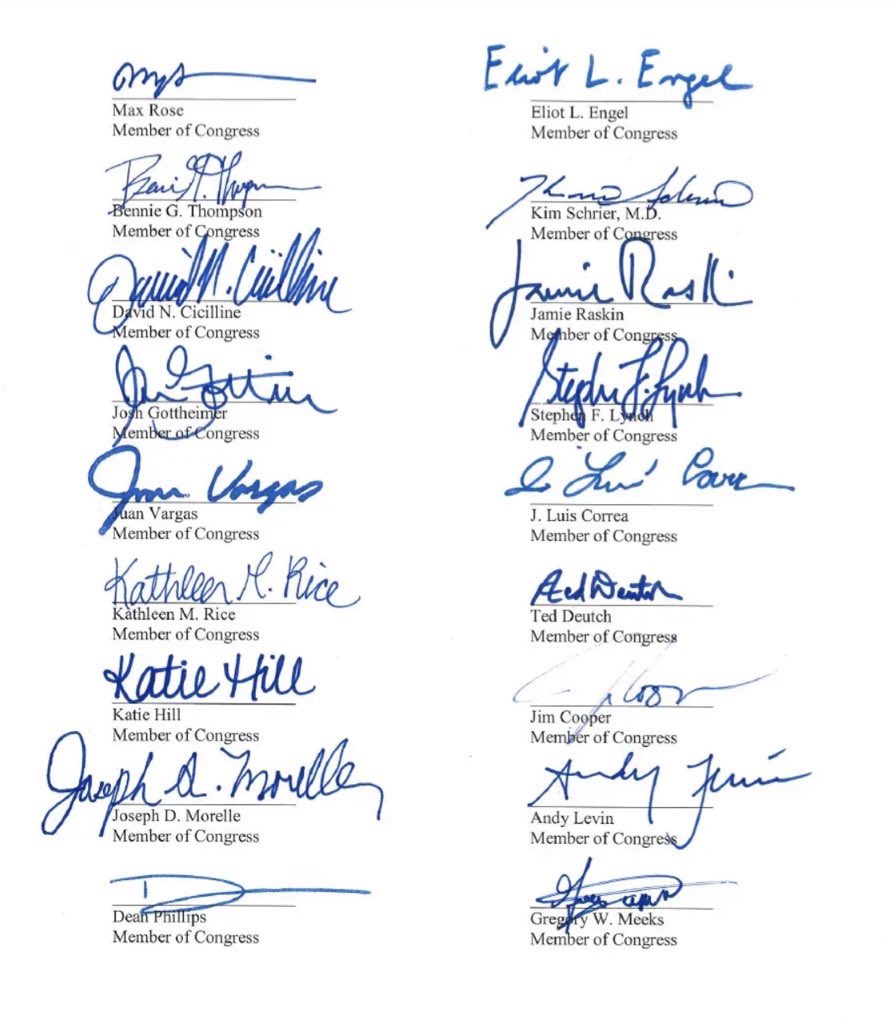 Max Rose
Member of Congress
Eliot L. Engel
Eliot L. Engel
Member of Congress
Bennie G. Thompson
Member of Congress
Kim Schrier, M.D.
Member of Congress
David N. Cicilline
David N. Cicilline
Member of Congress
Jamie Raskin
Jamie Raskin
Member of Congress
Josh Gottheimer
Member of Congress
Stephen F. Lynch
Stephen F. Lynch
Member of Congress
Juan Vargas
Juan Vargas
Member of Congress
J. Luis Correa
Member of Congress
Kathleen M. Rice
Kathleen M. Rice
Member of Congress
Ted Deutch
Ted Deutch
Member of Congress
Katie Hill
Katie Hill
Member of Congress
Jim Cooper
Member of Congress
Joseph D. Morelle
Joseph D. Morelle
Member of Congress
Andy Levin
Andy Levin
Member of Congress
Dean Phillips
Member of Congress
Gregory W. Meeks
Member of Congress